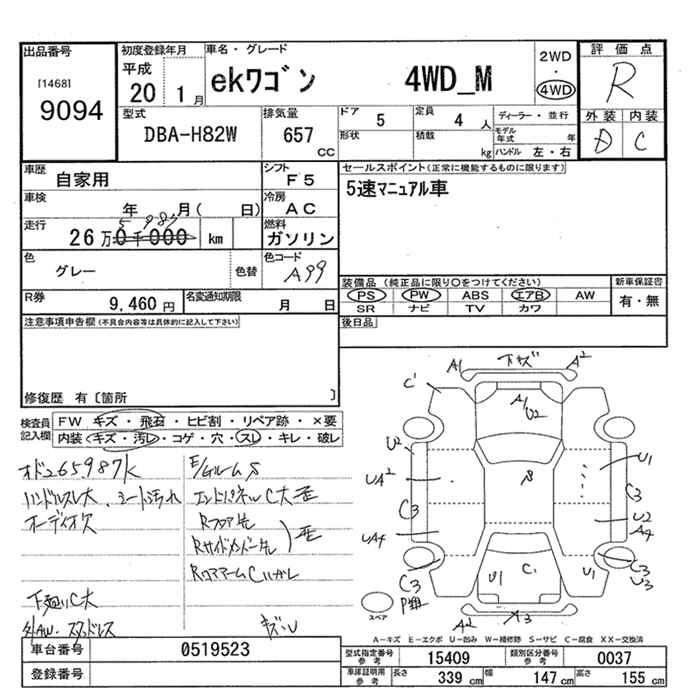 出品番号 [1468] 9094
初度登録年月 平成 20 1月
車名・グレード ekワゴン 4WD_M
2WD・4WD
評価点 R
外装 D 内装 C
型式 DBA-H82W
排気量 657 CC
ドア 5
定員 4人
形状
積載 kg
ディーラー・並行
モデル年式 年
ハンドル 左・右
車歴 自家用
シフト F5
車検 年 月( 日)
冷房 AC
走行 26万0千000 5 987 km
燃料 ガソリン
色 グレー 色替
色コード A99
R券 9,460円
名変通知期限 月 日
セールスポイント(正常に機能するものに限ります)
5速マニュアル車
装備品(純正品に限り○をつけてください)
PS PW ABS エアB AW
SR ナビ TV カワ
新車保証書 有・無
後日品
注意事項申告欄(不具合内容等は具体的に記入して下さい)
修復歴 有〔箇所 〕
検査員記入欄
FW キズ・飛石・ヒビ割・リペア跡・×要
内装(キズ・汚レ・コゲ・穴・スレ・キレ・破レ
オド265987k
ハンドルスレ大、シート汚れ
オーディオ欠
下廻りC大
外AW・スタッドレス
E/Gルーム S
エンドパネルC大歪
Rフロア先
Rサイドメンバー先
歪
キズ・U
下キズ
A1
A2
C1
A1
U2
U2
UA2
C3
UA4
S
U1
C3
U2
A4
C3
U3
C3
P錆
U1
C1
U1
A2
A3
スペア
A-キズ E-エクボ U-凹み W-補修跡 S-サビ C-腐食 XX-交換済
車台番号 0519523
登録番号
型式指定番号参考 15409
類別区分番号参考 0037
車庫証明用参考 長さ 339 cm 幅 147 cm 高さ 155 cm